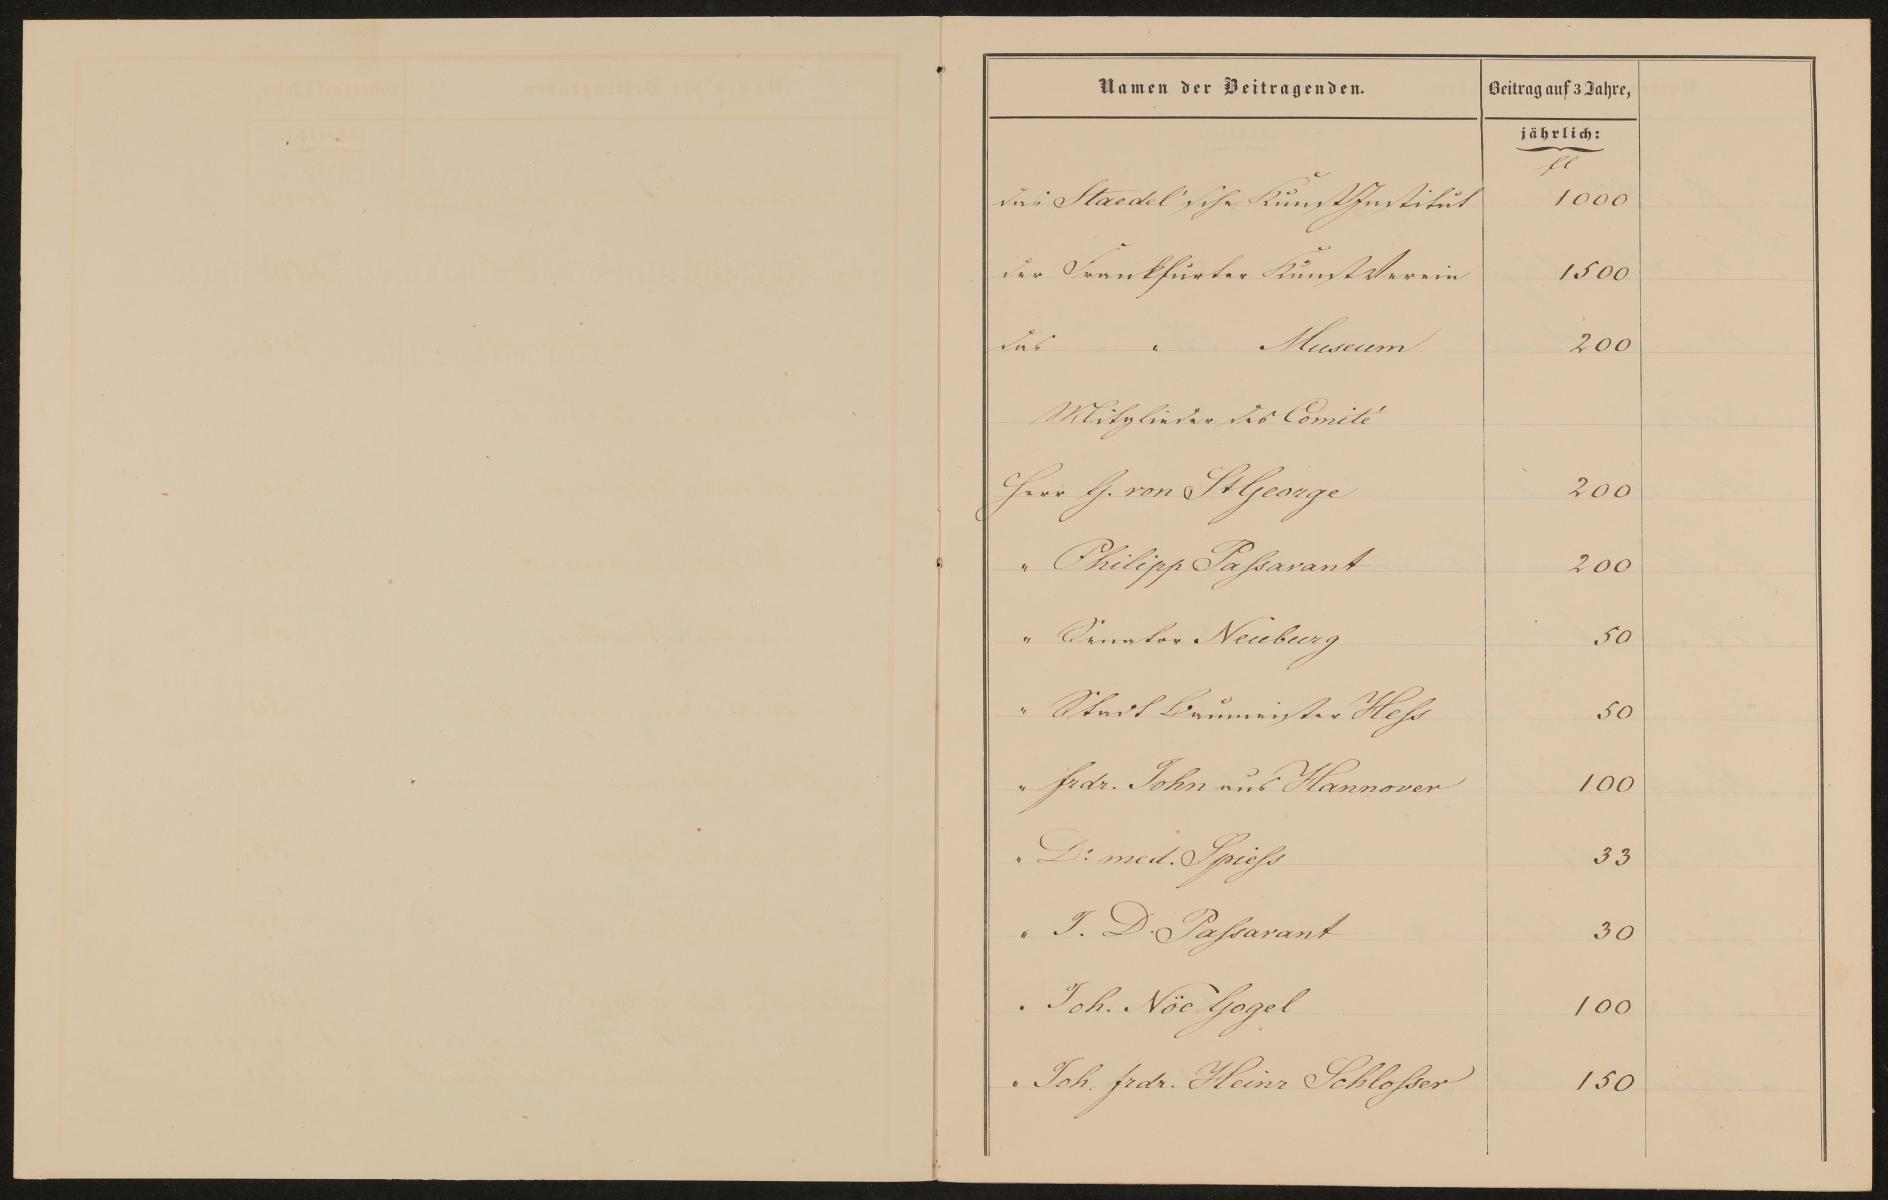 Namen der Beitragenden.
Beitrag auf 3 Jahre,
jährlich:
fl
das Staedel'sche KunstInstitut 1000
der Frankfurter KunstVerein 1500
das " Museum 200
Mitglieder des Comité
Herr G. von St George 200
" Philipp Passavant 200
" Senator Neuburg 50
" Stadt Baumeister Hess 50
" frdr. John aus Hannover 100
" Dr. med. Spiess 33
" J. D. Passavant 30
" Joh. Nöe Gogel 100
" Joh. frdr. Heinr Schlosser 150